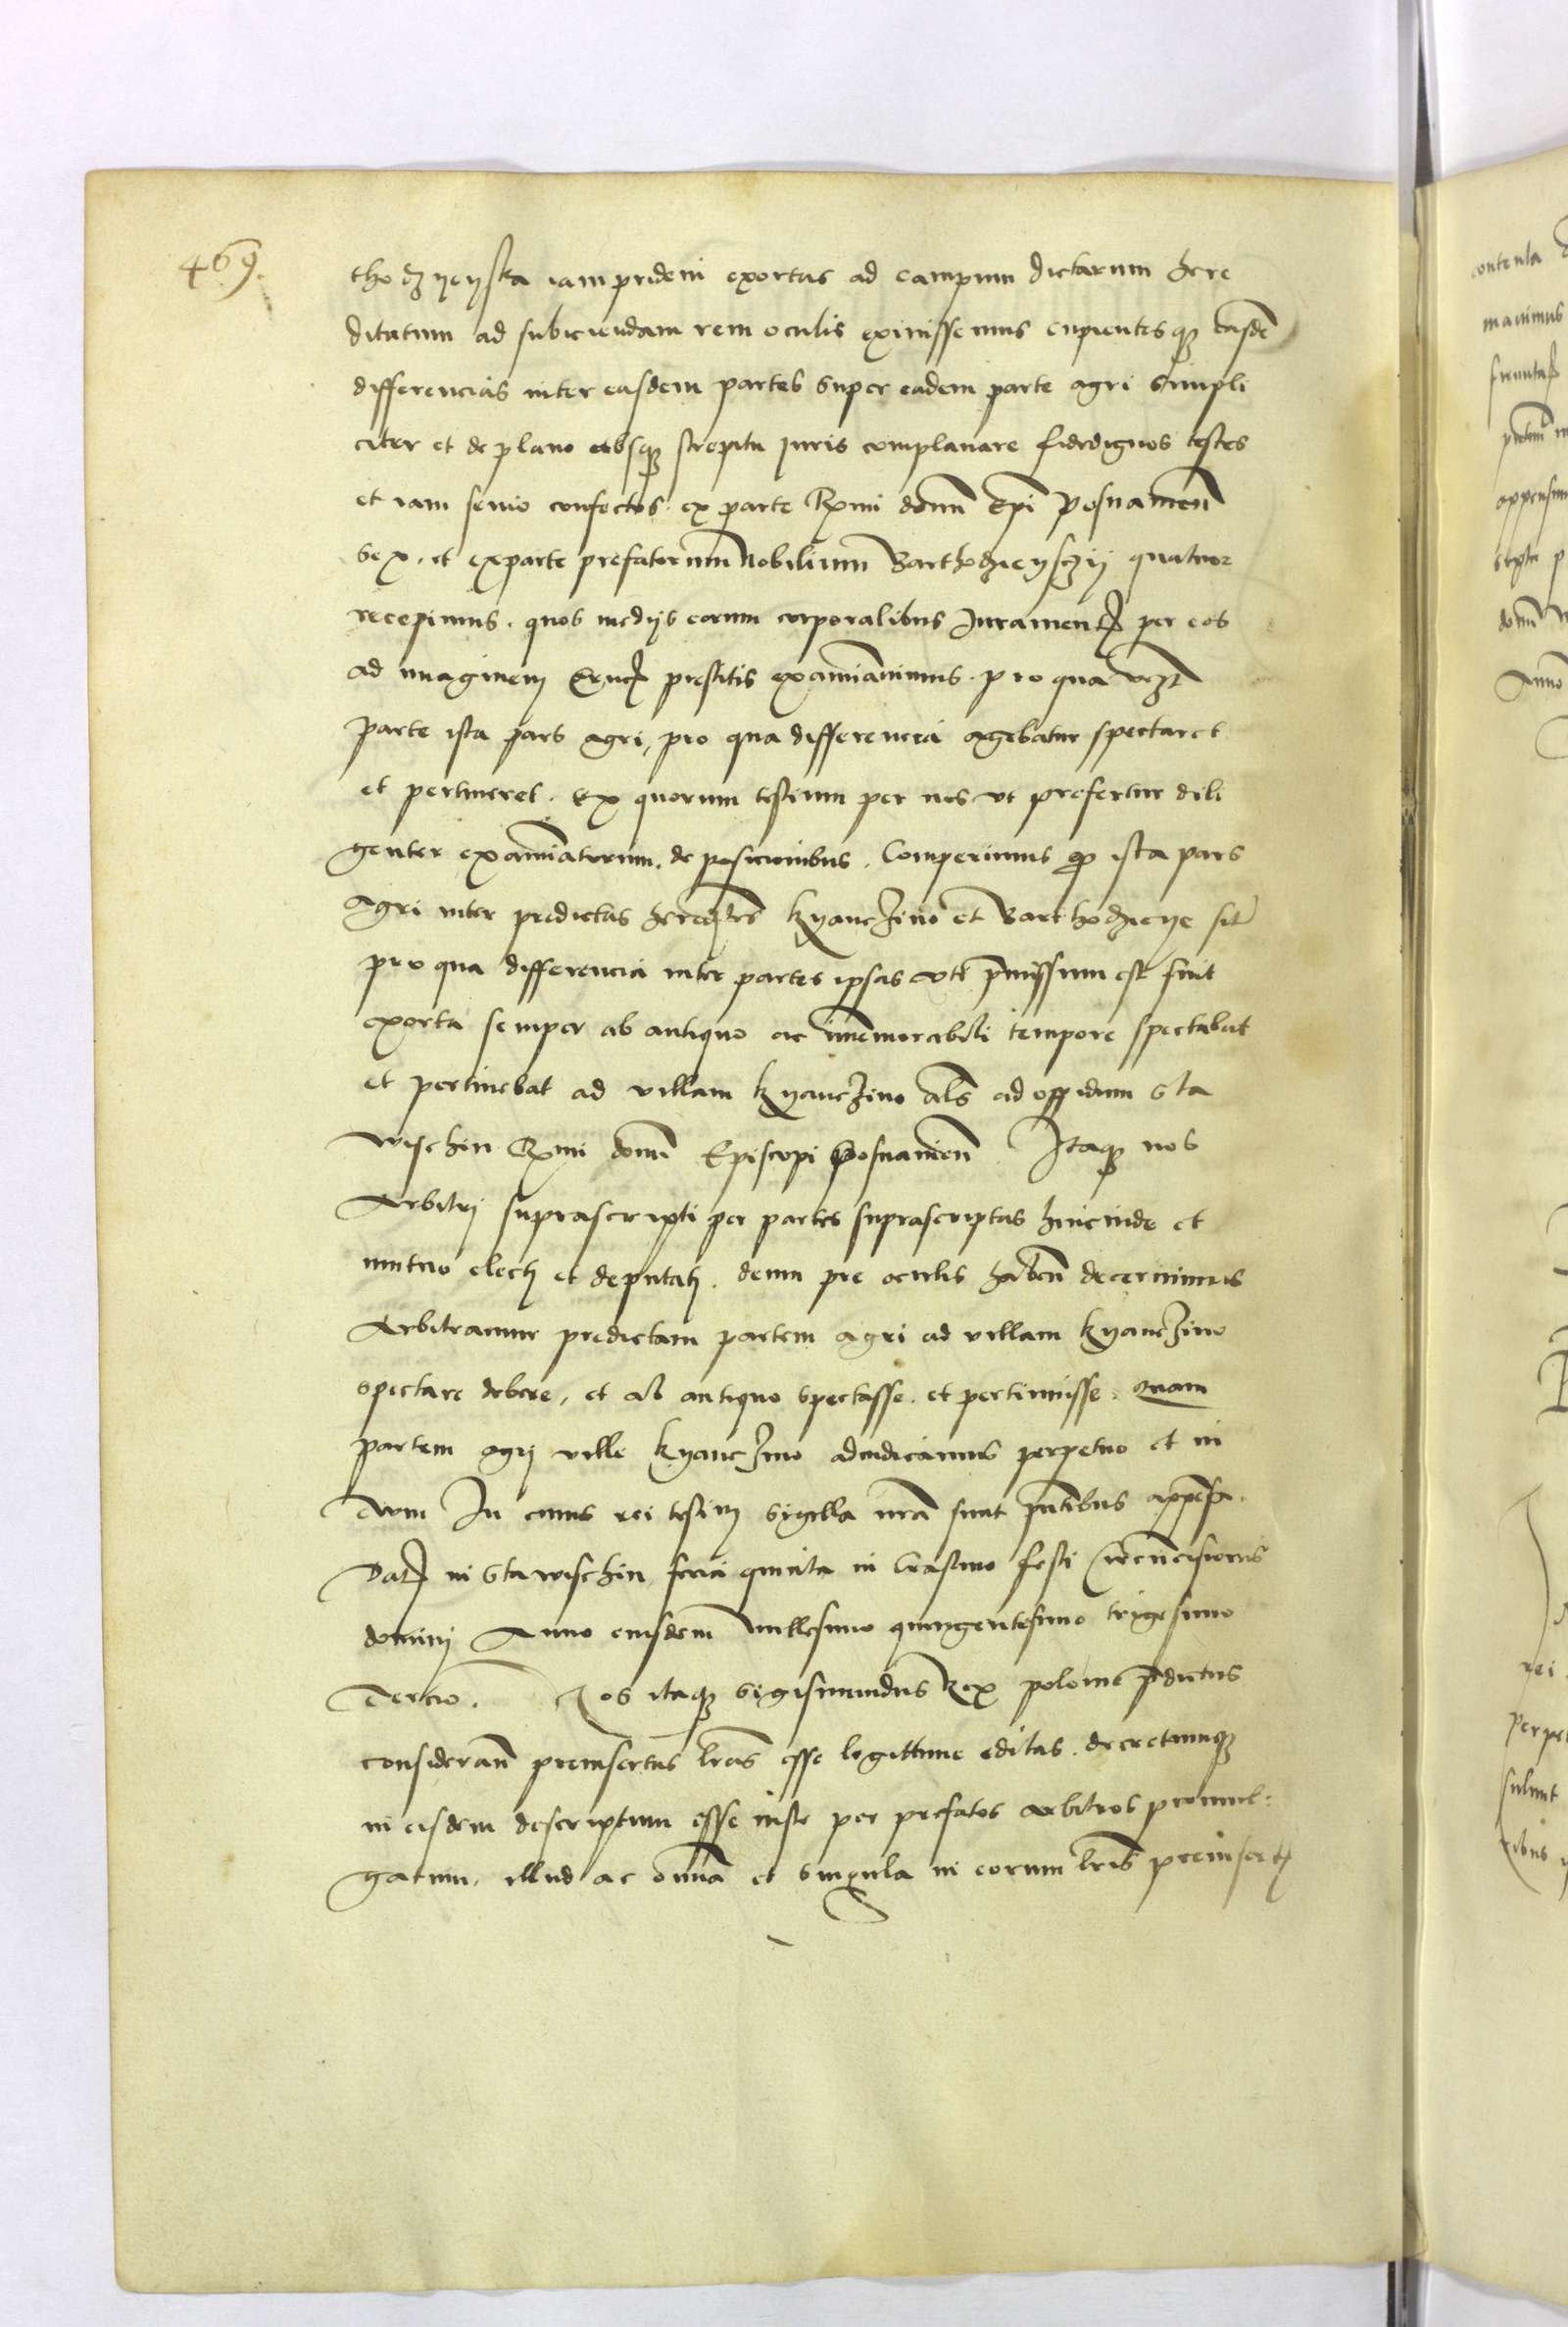 469.
thodzyeyska iam pridem exortas ad campum dictarum here
ditatum ad subiciendam rem oculis exivissemus cupientesq easde
differencias inter easdem partes super eadem parte agri simpli
citer et de plano absq strepitu juris complanare fidedignos testes
et iam senio confectos ex parte Rmi domn Epi Posnamen
sex. et ex parte prefatorum Nobilium Barthodzieysczij quatuor
recepimus. quos medijs eorum corporalibus Jurament per eos
ad imaginem Cruc prestitis examiavimus. pro qua vczt
parte ista pars agri, pro qua differencia agebatur spectaret
et pertineret. Ex quorum testium per nos ut prefertur dili
genter examiatorum. de posicionibus. Comperimus qd ista pars
Agri inter predictas heredtes KyancZino et Barthodzieye sit
pro qua differencia inter partes ipsas uti pmissum est fuit
exorta semper ab antiquo ac imemorabili tempore spectabat
et pertinebat ad villam KyancZino als ad oppidum Sta
wischin Rmi domi Episcopi Posnamen Itaq nos
Arbitrj suprascripti per partes suprascriptas hincinde et
mutuo electj et deputatj. deum pre oculis haben decernimus
Arbitramur predictam partem agri ad villam KyancZino
spectare debere, et ab antiquo spectasse. et pertinuisse. Quam
partem agrj ville KyancZino adiudicamus perpetuo et in
Aevum In cuius rei testim sigilla nra sunt pntibus appensa.
Dat in Stawischin feria quinta in Crastino festi Circucisionis
dominj Anno eiusdem Millesimo quingentesimo trigesimo
Tercio. Nos itaq Sigismundus Rex polonie pdictus
consideran preinsertas lras esse legittime editas. decretumq
in eisdem descriptum esse iuste per prefatos arbitros promul:
gatum, illud ac omnia et singula in eorum lris preinsertj
contenta
Anno
rei